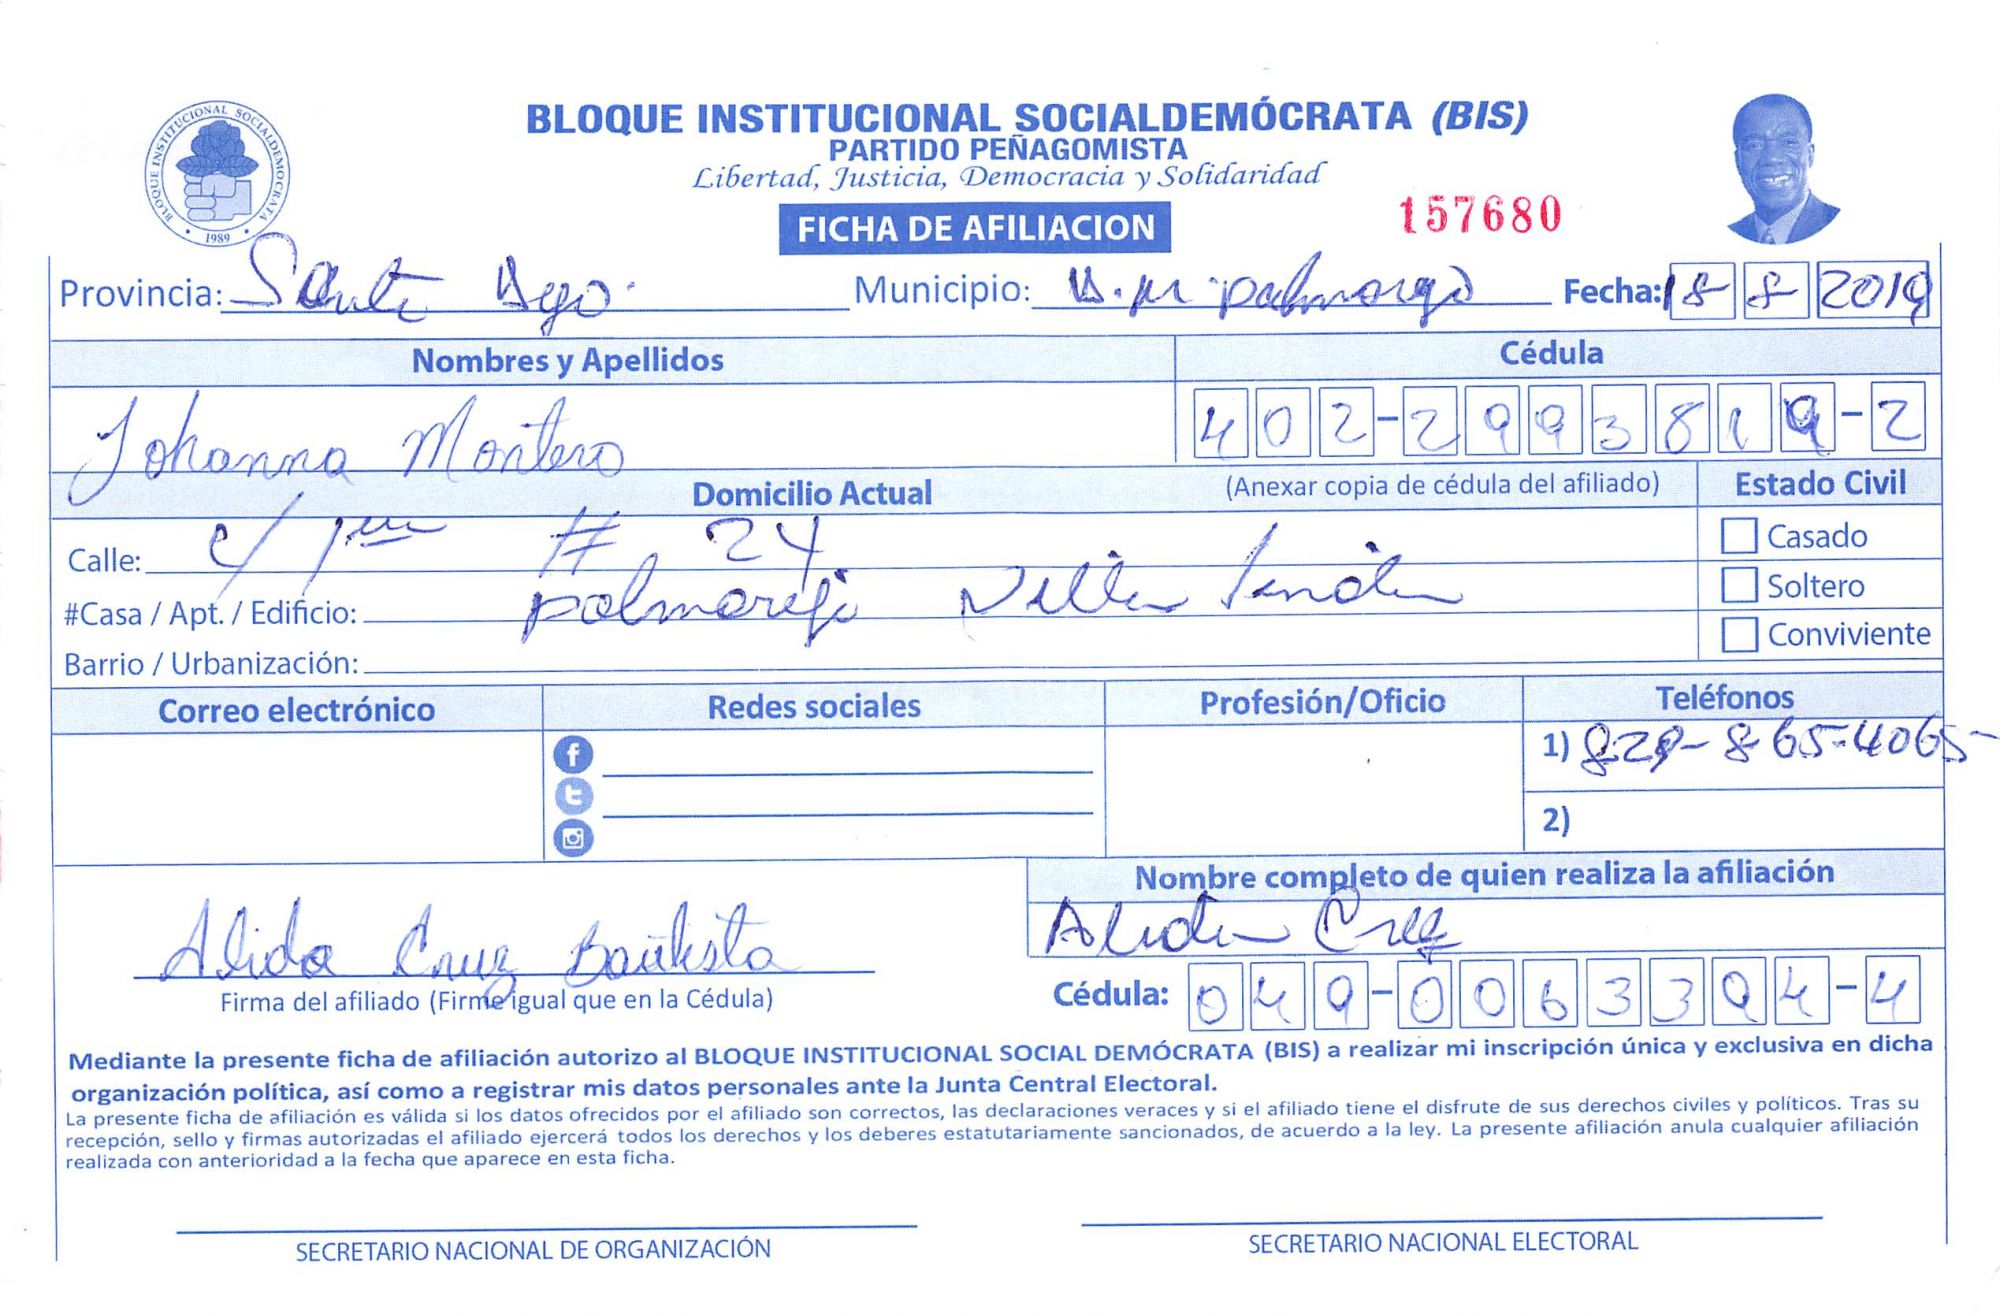 BLOQUE INSTITUCIONAL SOCIALDEMOCRATA
1989
BLOQUE INSTITUCIONAL SOCIALDEMÓCRATA (BIS)
PARTIDO PEÑAGOMISTA
Libertad, Justicia, Democracia y Solidaridad
FICHA DE AFILIACION
157680
Provincia: Santo Dgo. Municipio: D.M. palmarejo Fecha: 18 8 2019
Nombres y Apellidos Cédula
Johanna Montero 402-2993819-2
Domicilio Actual (Anexar copia de cédula del afiliado) Estado Civil
Calle: c/ 1era # 24 Casado
#Casa / Apt. / Edificio: palmarejo Villa Linda Soltero
Barrio / Urbanización: Conviviente
Correo electrónico Redes sociales Profesión/Oficio Teléfonos
1) 829-865-4065
2)
Nombre completo de quien realiza la afiliación
Alida Cruz Bautista Alida Cruz
Firma del afiliado (Firme igual que en la Cédula) Cédula: 049-0063394-4
Mediante la presente ficha de afiliación autorizo al BLOQUE INSTITUCIONAL SOCIAL DEMÓCRATA (BIS) a realizar mi inscripción única y exclusiva en dicha
organización política, así como a registrar mis datos personales ante la Junta Central Electoral.
La presente ficha de afiliación es válida si los datos ofrecidos por el afiliado son correctos, las declaraciones veraces y si el afiliado tiene el disfrute de sus derechos civiles y políticos. Tras su
recepción, sello y firmas autorizadas el afiliado ejercerá todos los derechos y los deberes estatutariamente sancionados, de acuerdo a la ley. La presente afiliación anula cualquier afiliación
realizada con anterioridad a la fecha que aparece en esta ficha.
SECRETARIO NACIONAL DE ORGANIZACIÓN SECRETARIO NACIONAL ELECTORAL